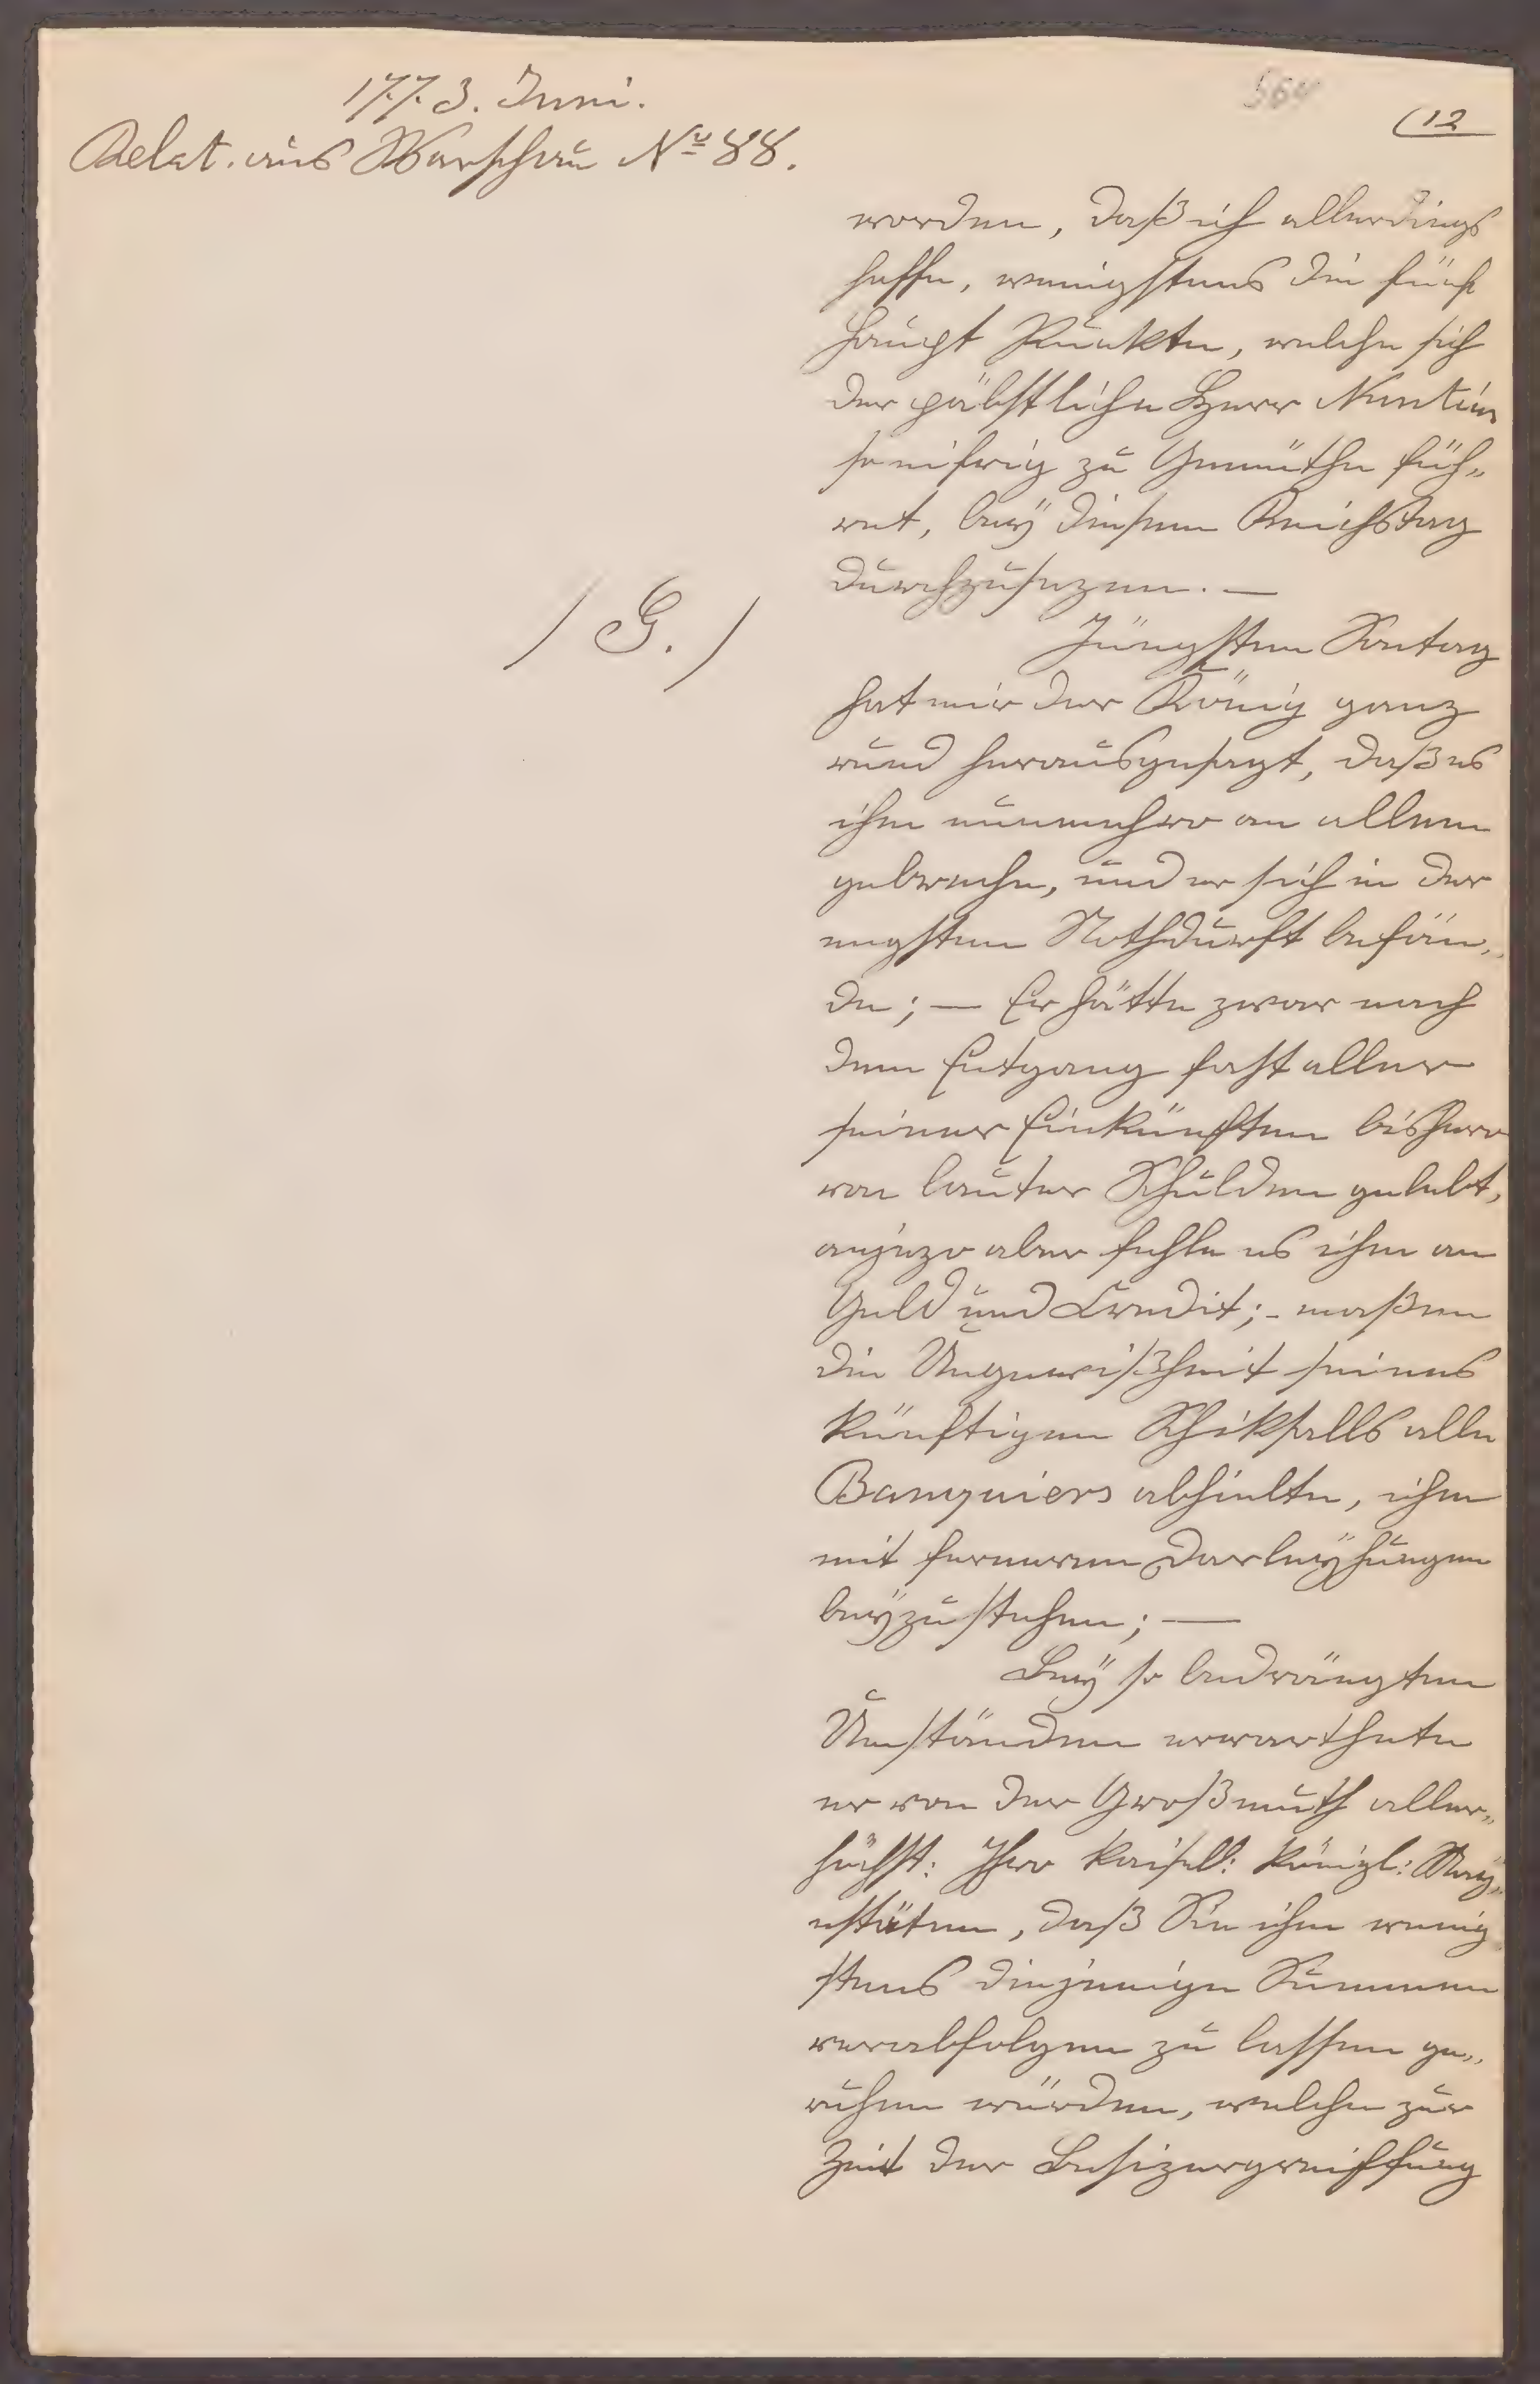 1773. Juni.
564
(12
Relat. aus Warschau No 88.
worden, daß ich allerdings
hoffe, wenigstens die fünf
Haupt Punkte, welche sich
der päbstliche Herr Nuntius
so eifrig zu Gemüthe füh„
ret, beÿ diesem Reichstag
durchzusezen. —
/ G. /
Jüngsten Sontag
hat mir der König ganz
rund herausgesagt, daß es
ihm nunmehro an allem
gebreche, und er sich in der
engsten Nothdurft befän„
de; — Er hätte zwar nach
dem Entgang fast aller
seiner Einkünften bishero
von lauter Schulden gelebt,
anjezo aber fehle es ihm an
Geld und Credit; - maßen
die Ungewißheit seines
künftigen Schiksalls alle
Banquiers abhielte, ihm
mit ferneren Darleÿhungen
beÿzustehen; —
Beÿ so bedrängten
Umständen erwarthete
er von der Großmuth aller„
höchst: Ihro kaiserl: königl: Maÿ„
estäten, daß Sie ihm wenig
stens diejenige Summen
verabfolgen zu lassen ge„
ruhen würden, welche zur
Zeit der Besizergreiffung